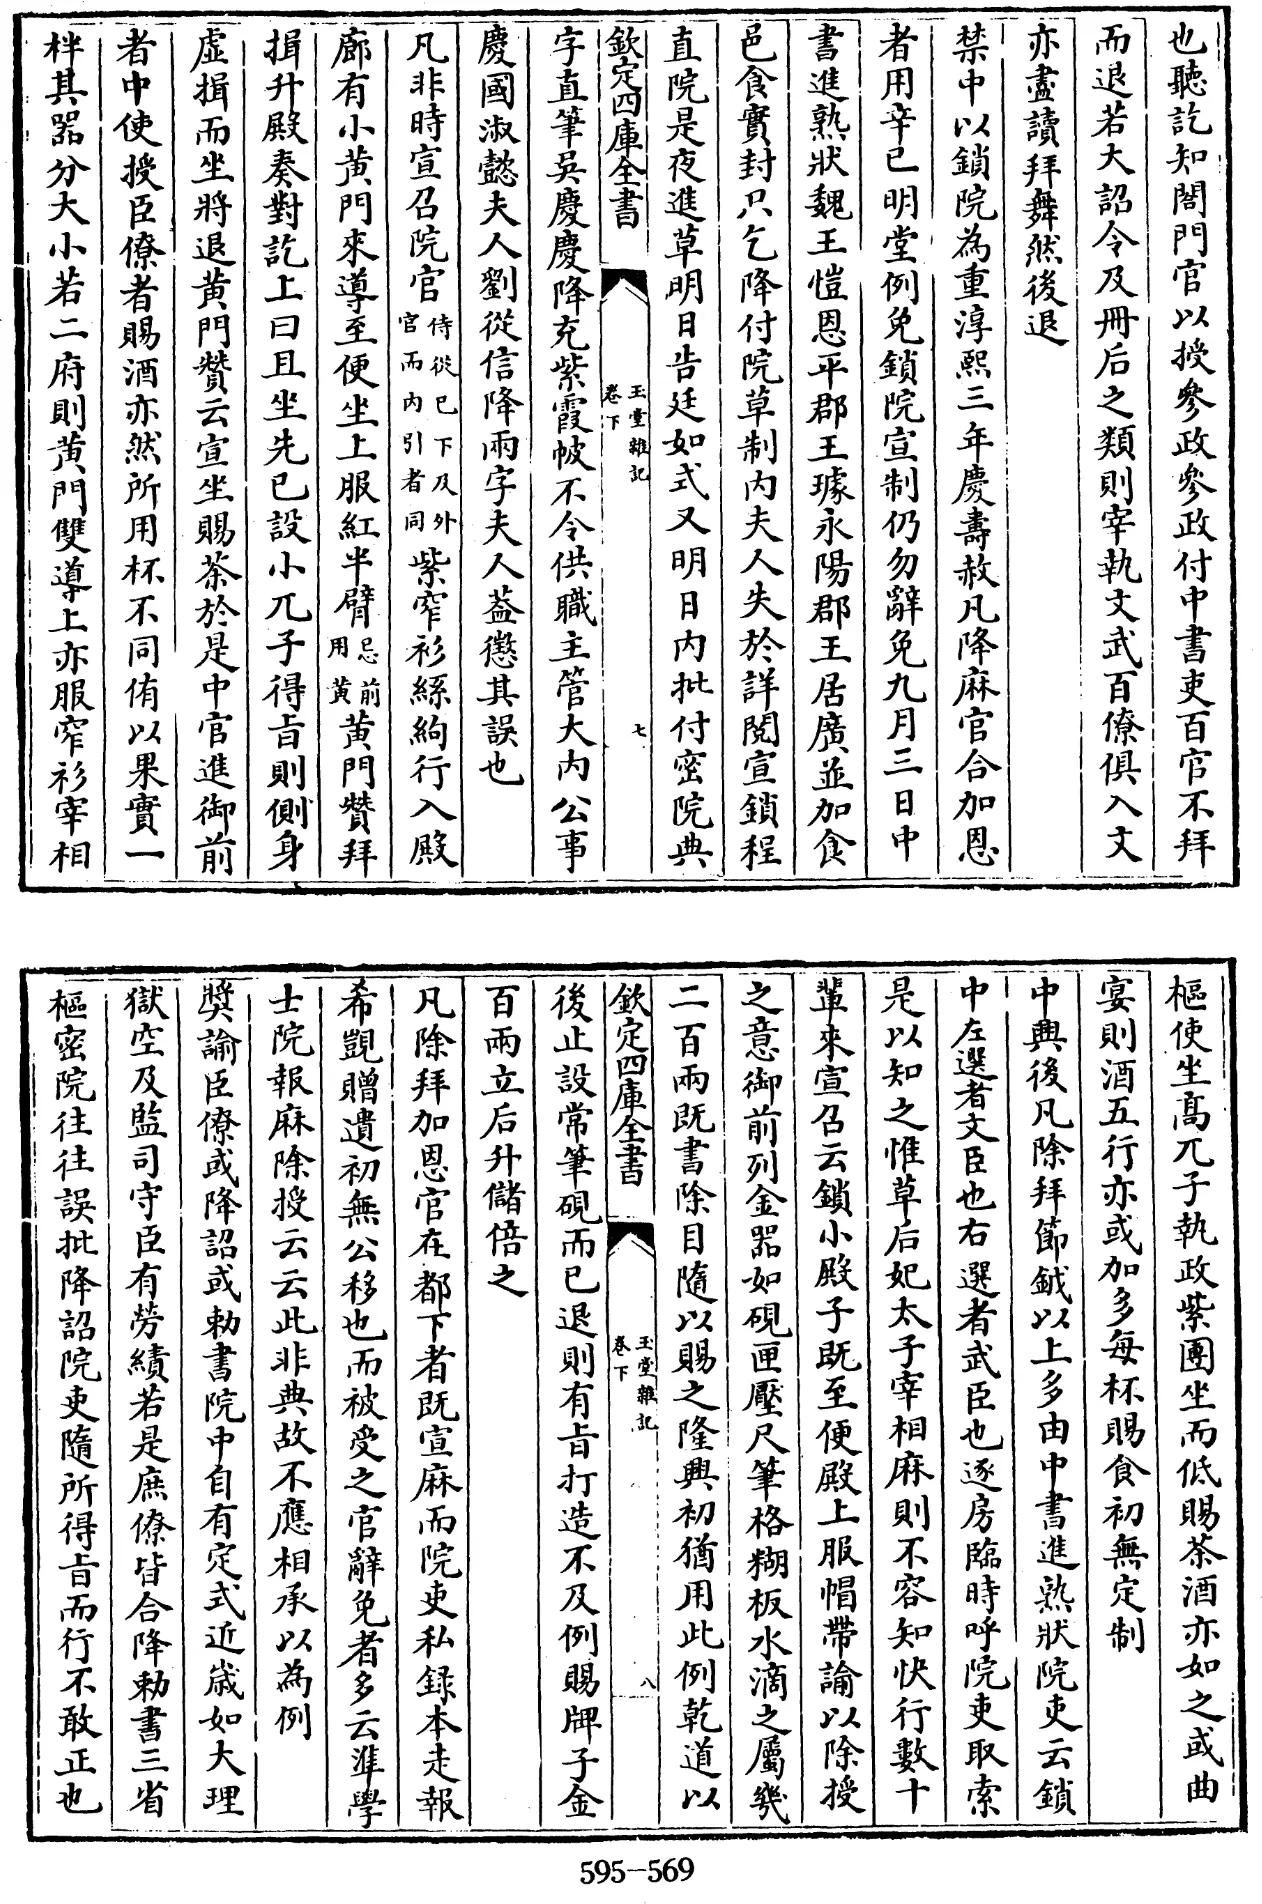 也聽訖知閤門官以授參政參政付中書吏百官不拜
而退若大詔令及冊后之類則宰執文武百僚俱入文
亦盡讀拜舞然後退
禁中以鎖院為重淳熙三年慶壽赦凡降麻官合加恩
者用辛巳明堂例免鎖院宣制仍勿辭免九月三日中
書進熟狀魏王愷恩平郡王璩永陽郡王居廣並加食
邑食實封只乞降付院草制内夫人失於詳閱宣鎖程
直院是夜進草明日告廷如式又明日内批付密院典
欽定四庫全書
玉堂雜記
卷下
七
字直筆吳慶慶降充紫霞帔不令供職主管大内公事
慶國淑懿夫人劉從信降兩字夫人葢懲其誤也
凡非時宣召院官侍從已下及外官而内引者同紫窄衫絲絇行入殿
廊有小黄門來導至便坐上服紅半臂忌前用黄黄門贊拜
揖升殿奏對訖上曰且坐先已設小兀子得㫖則側身
虛揖而坐將退黄門贊云宣坐賜茶於是中官進御前
者中使授臣僚者賜酒亦然所用杯不同侑以果實一
柈其器分大小若二府則黄門雙導上亦服窄衫宰相
樞使坐髙兀子執政紫團坐而低賜茶酒亦如之或曲
宴則酒五行亦或加多每杯賜食初無定制
中興後凡除拜節鉞以上多由中書進熟狀院吏云鎖
中左選者文臣也右選者武臣也逐房臨時呼院吏取索
是以知之惟草后妃太子宰相麻則不容知快行數十
輩來宣召云鎖小殿子既至便殿上服帽帶諭以除授
之意御前列金器如硯匣壓尺筆格糊板水滴之屬幾
二百兩既書除目隨以賜之隆興初猶用此例乾道以
欽定四庫全書
玉堂雜記
卷下
八
後止設常筆硯而已退則有㫖打造不及例賜牌子金
百兩立后升儲倍之
凡除拜加恩官在都下者既宣麻而院吏私録本走報
希覬贈遺初無公移也而被受之官辭免者多云準學
士院報麻除授云云此非典故不應相承以為例
奬諭臣僚或降詔或勅書院中自有定式近歲如大理
獄空及監司守臣有勞績若是庶僚皆合降勅書三省
樞密院往往誤批降詔院吏隨所得㫖而行不敢正也
595-569